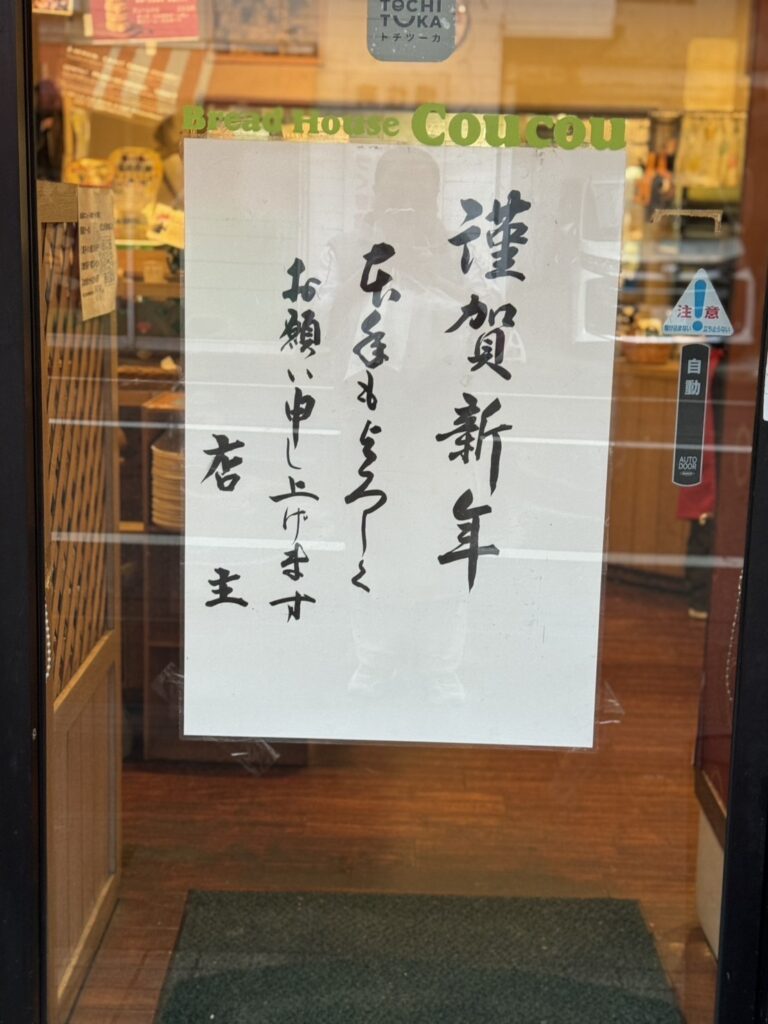 TOCHI
TUKA
トチツーカ
Bread House Coucou
謹賀新年
本年もよろしく
お願い申し上げます
店主
注意
駆け込まない 立ち止らない
自動
AUTO
DOOR